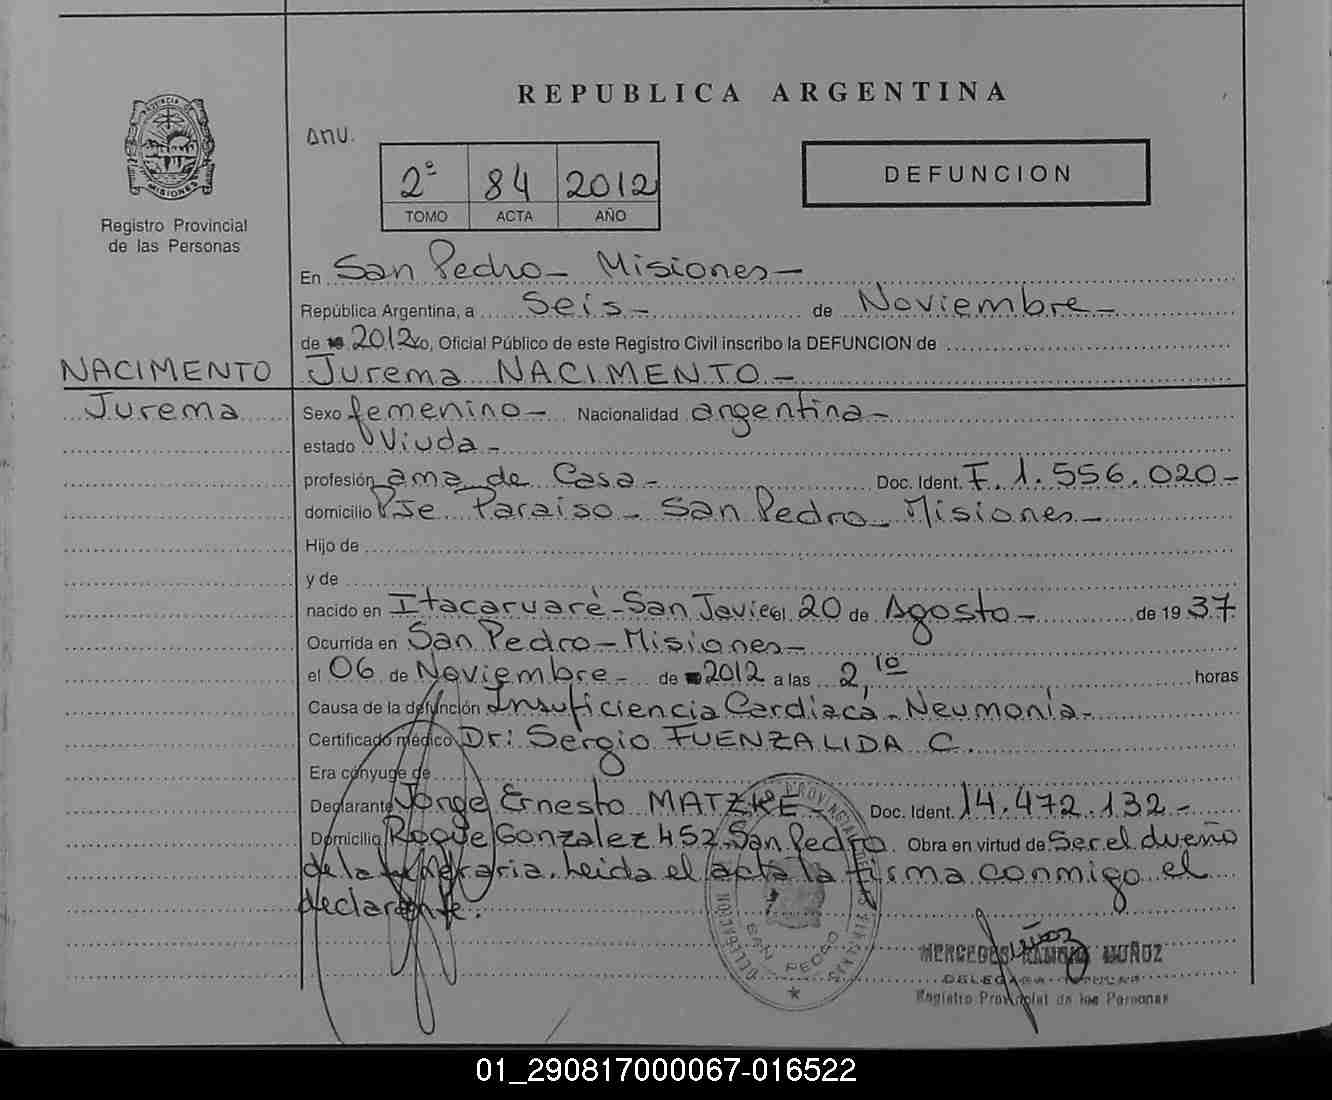 REPUBLICA ARGENTINA
PROVINCIA DE
MISIONES
Registro Provincial
de las Personas
Anv.
2º 84 2012
TOMO ACTA AÑO
DEFUNCION
En San Pedro - Misiones -
República Argentina, a Seis - de Noviembre -
de 2012 yo, Oficial Público de este Registro Civil inscribo la DEFUNCION de
NACIMENTO Jurema NACIMENTO -
Jurema Sexo femenino - Nacionalidad argentina -
estado Viuda -
profesión ama de Casa - Doc. Ident. F. 1.556.020 -
domicilio Pje Paraiso - San Pedro - Misiones -
Hijo de
y de
nacido en Itacaruaré - San Javier el 20 de Agosto - de 1937
Ocurrida en San Pedro - Misiones -
el 06 de Noviembre - de 2012 a las 2,10 horas
Causa de la defunción Insuficiencia Cardiaca - Neumonía -
Certificado médico Dr: Sergio FUENZALIDA C.
Era cónyuge de
Declarante Jorge Ernesto MATZKE - Doc. Ident. 14.472.132 -
Domicilio Roque Gonzalez 452 San Pedro. Obra en virtud de Ser el dueño
de la funeraria. Leida el acta la firma conmigo el
declarante.
SAN PEDRO
Muñoz
MERCEDES RAMONA MUÑOZ
DELEGADA TITULAR
Registro Provincial de las Personas
01_290817000067-016522